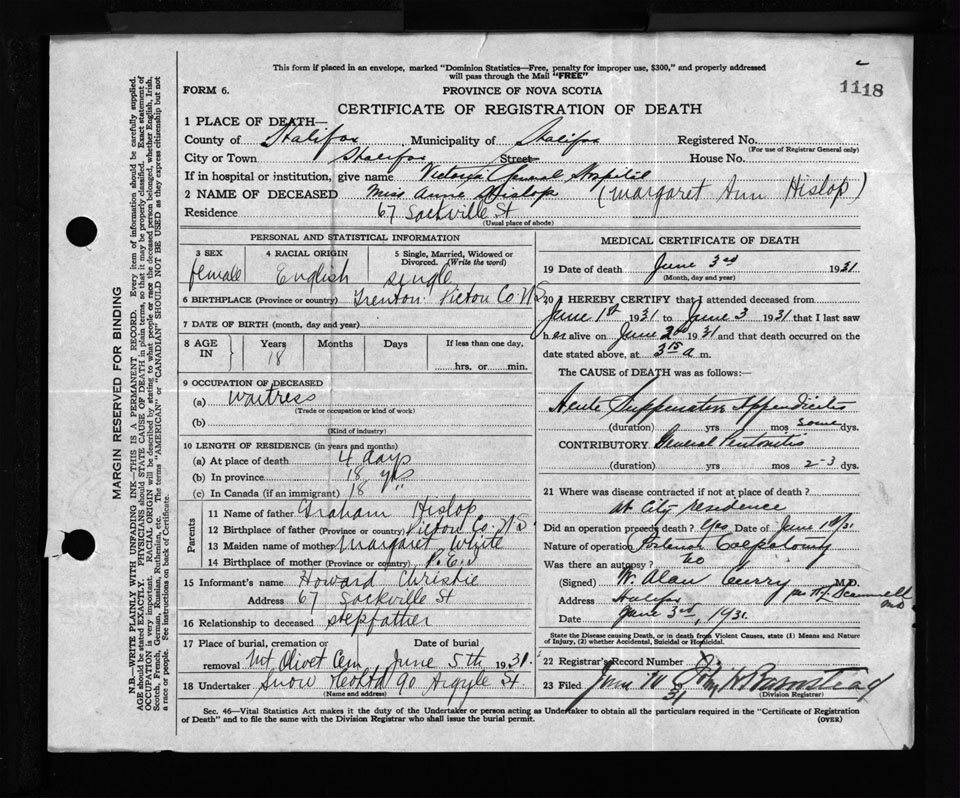 This form if placed in an envelope, marked "Dominion Statistics—Free, penalty for improper use, $300," and properly addressed
will pass through the Mail "FREE"
1118
FORM 6.
PROVINCE OF NOVA SCOTIA
CERTIFICATE OF REGISTRATION OF DEATH
1 PLACE OF DEATH—
County of Halifax Municipality of Halifax Registered No.
(For use of Registrar General only)
City or Town Halifax Street House No.
If in hospital or institution, give name Victoria General Hospital
2 NAME OF DECEASED Miss Annie Hislop (Margaret Ann Hislop)
Residence 67 Sackville St
(Usual place of abode)
MARGIN RESERVED FOR BINDING
N.B.—WRITE PLAINLY WITH UNFADING INK—THIS IS A PERMANENT RECORD. Every item of information should be carefully supplied.
AGE should be stated EXACTLY. PHYSICIANS should STATE CAUSE OF DEATH in plain terms, so that it may be properly classified. Exact statement of
OCCUPATION is very important. RACIAL ORIGIN will be described by stating to what people or race the deceased person belonged, whether English, Irish,
Scotch, French, German, Russian, Ruthenian, etc. The terms "AMERICAN" or "CANADIAN" SHOULD NOT BE USED as they express citizenship but not
a race or people. See instructions on back of Certificate.
PERSONAL AND STATISTICAL INFORMATION
3 SEX female
4 RACIAL ORIGIN English
5 Single, Married, Widowed or
Divorced. (Write the word)
single
6 BIRTHPLACE (Province or country) Trenton Pictou Co. N.S.
7 DATE OF BIRTH (month, day and year)
8 AGE IN Years 18 Months Days If less than one day,
hrs. or min.
9 OCCUPATION OF DECEASED
(a) Waitress
(Trade or occupation or kind of work)
(b)
(Kind of industry)
10 LENGTH OF RESIDENCE (in years and months)
(a) At place of death 4 days
(b) In province 18 yrs
(c) In Canada (if an immigrant) 18 "
Parents
11 Name of father Graham Hislop
12 Birthplace of father (Province or country) Pictou Co. N.S.
13 Maiden name of mother Margaret White
14 Birthplace of mother (Province or country) P.E.I
15 Informant's name Howard Christie
Address 67 Sackville St
16 Relationship to deceased stepfather
17 Place of burial, cremation or removal Mt Olivet Cem Date of burial June 5th 1931
18 Undertaker Snow & Co Ltd 90 Argyle St.
(Name and address)
MEDICAL CERTIFICATE OF DEATH
19 Date of death June 3rd 1931
(Month, day and year)
20 I HEREBY CERTIFY that I attended deceased from
June 1st 1931 to June 3 1931 that I last saw
her alive on June 2nd 1931 and that death occurred on the
date stated above, at 3 15 a m.
The CAUSE of DEATH was as follows:—
Acute Suppurative Appendicitis
(duration) yrs mos some dys.
CONTRIBUTORY General Peritonitis
(duration) yrs mos 2-3 dys.
21 Where was disease contracted if not at place of death?
at City residence
Did an operation precede death? Yes Date of June 1st/31
Nature of operation Posterior
Was there an autopsy? No
(Signed) W. Alan Curry M.D.
per H.J. Scammell MD
Address Halifax
Date June 3rd, 1931.
State the Disease causing Death, or in death from Violent Causes, state (1) Means and Nature
of Injury, (2) whether Accidental, Suicidal or Homicidal.
22 Registrar's Record Number
23 Filed June 31 John H Barnstead
(Division Registrar)
Sec. 46—Vital Statistics Act makes it the duty of the Undertaker or person acting as Undertaker to obtain all the particulars required in the "Certificate of Registration
of Death" and to file the same with the Division Registrar who shall issue the burial permit.
(OVER)